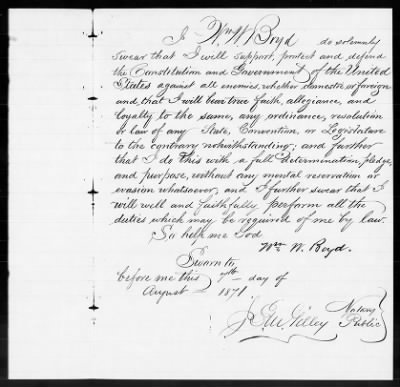 I Wm W Boyd do solemnly
swear that I will support, protect and defend
the Constitution and Government of the United
States against all enemies, whether domestic or foreign
and that I will bear true faith, allegiance, and
loyalty to the same, any ordinance, resolution
or law of any State, Convention, or Legislature
to the contrary notwithstanding; and further
that I do this with a full determination, pledge,
and purpose, without any mental reservation or
evasion whatsoever, and I further swear that I
will well and faithfully perform all the
duties which may be required of me by law.
So help me God
Wm W. Boyd.
Sworn to
before me this 7th day of
August 1871.
Notary
Public